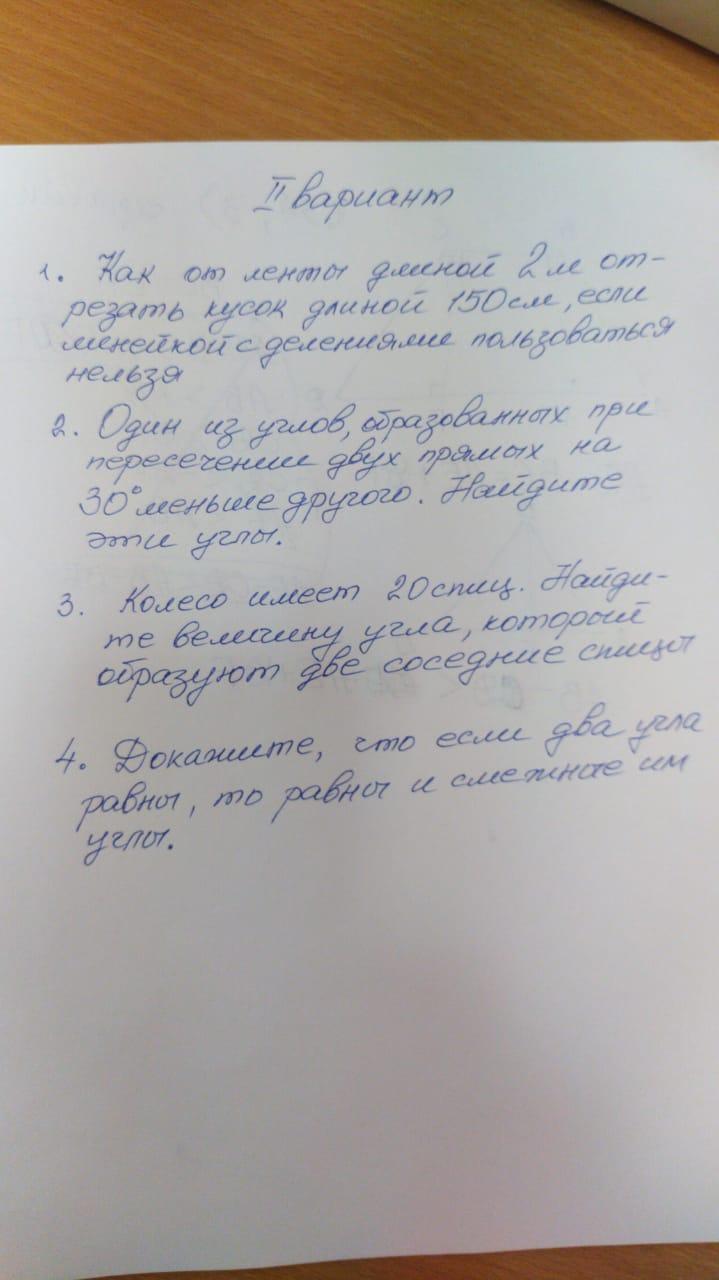 II вариант
1. Как от ленты длиной 2 м от-
резать кусок длиной 150 см, если
линейкой с делениями пользоваться
нельзя
2. Один из углов, образованных при
пересечении двух прямых на
30° меньше другого. Найдите
эти углы.
3. Колесо имеет 20 спиц. Найди-
те величину угла, который
образуют две соседние спицы
4. Докажите, что если два угла
равны, то равны и смежные им
углы.